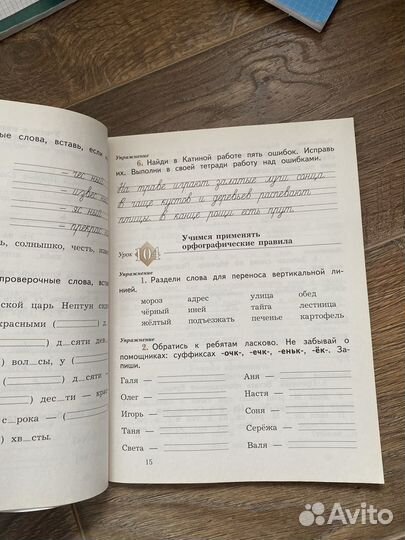 ые слова, вставь, если
– чес ный
– извес
– яс ный
– прекрас
ь, солнышко, честь, извес
проверочные слова, вста
ской царь Нептун
красными (
) д_сяти дев
) вол_сы, у
) д_сяти –
) дес_ти – крас
с_рока – (
) хв_сты.
Упражнение
6. Найди в Катиной работе пять ошибок. Исправь
их. Выполни в своей тетради работу над ошибками.
На траве играют залатые лучи сонца.
В чаще кустов и деревьев распевают
птицы. В канце рощи есть прут.
Урок 10
Учимся применять
орфографические правила
Упражнение
1. Раздели слова для переноса вертикальной ли-
нией.
мороз адрес улица обед
чёрный иней тайга лестница
жёлтый подъезжать печенье картофель
Упражнение
2. Обратись к ребятам ласково. Не забывай о
помощниках: суффиксах -очк-, -ечк-, -еньк-, -ёк-. За-
пиши.
Галя — Аня —
Олег — Настя —
Игорь — Соня —
Таня — Серёжа —
Света — Валя —
15
Avito